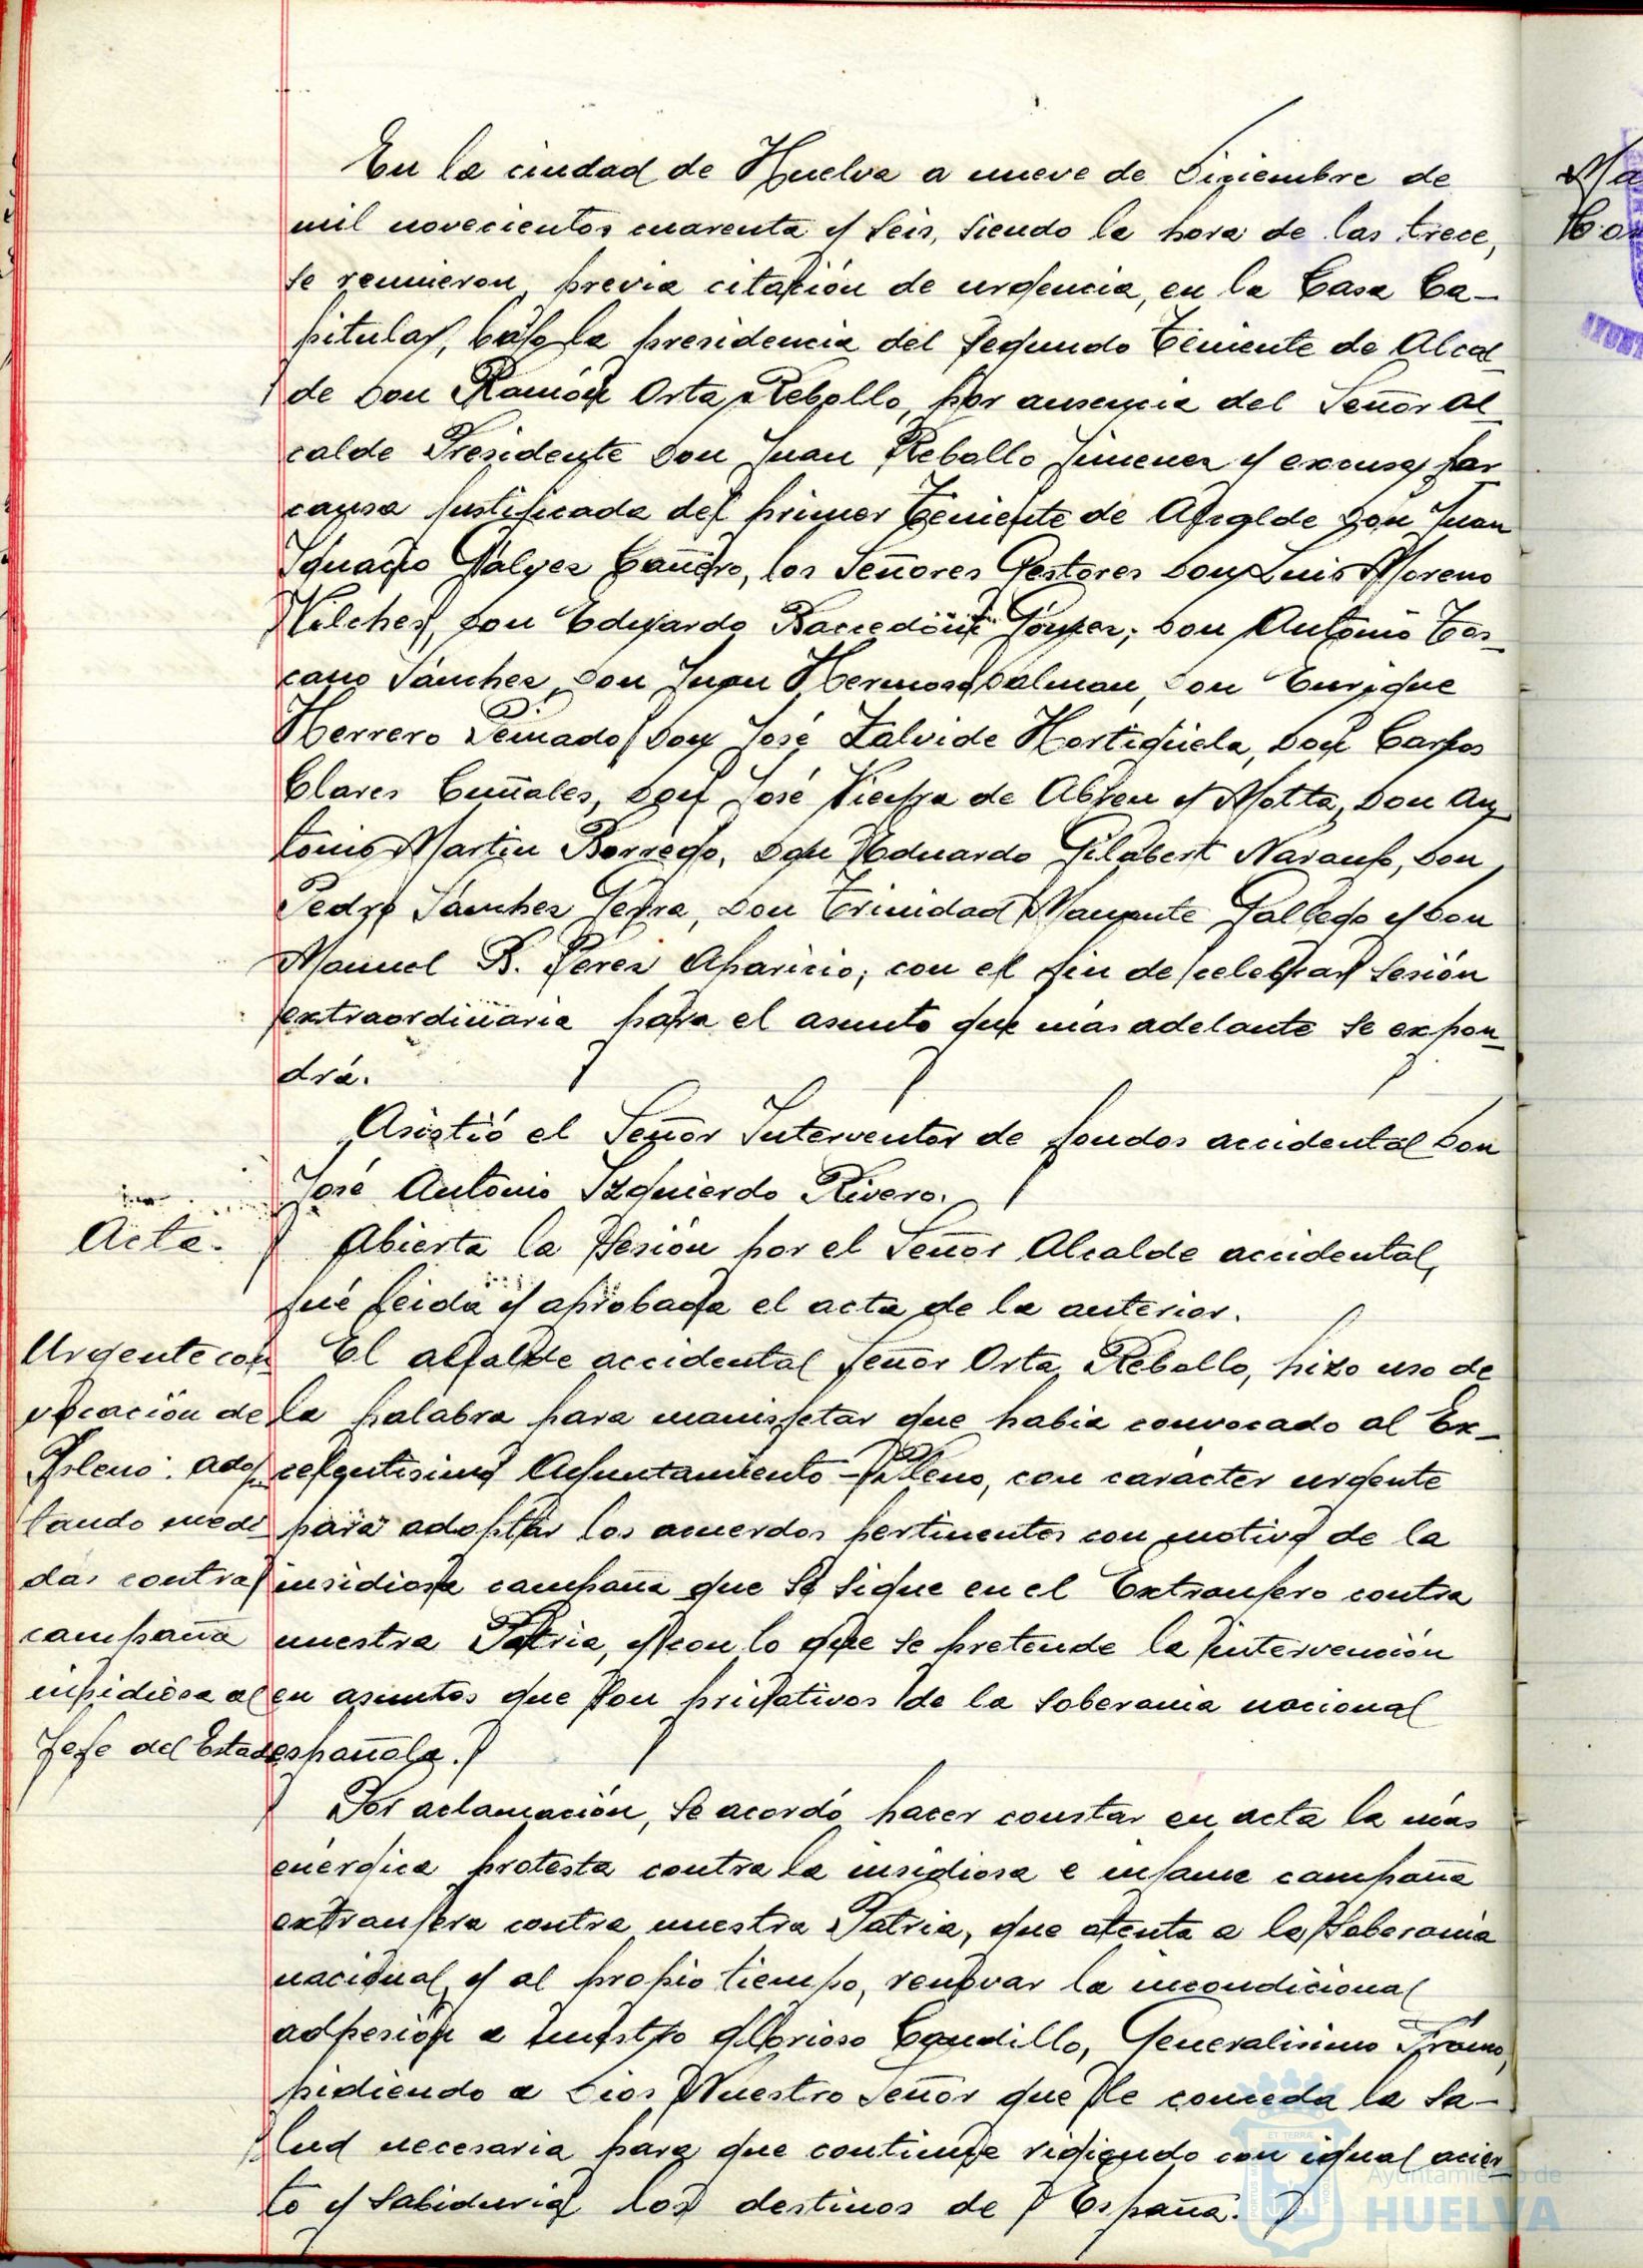 En la ciudad de Huelva a nueve de Diciembre de
mil novecientos cuarenta y seis, siendo la hora de las trece,
se reunieron, previa citación de urgencia, en la Casa Ca-
pitular, bajo la presidencia del Segundo Teniente de Alcal-
de Don Ramón Orta Rebollo, por ausencia del Señor Al-
calde Presidente Don Juan Rebollo Jimenez y excusa por
causa justificada del primer Teniente de Alcalde Don Juan
Ignacio Galvez Cañero, los Señores Gestores Don Luis Moreno
Vilches, Don Eduardo Gómez; Don Antonio Tos-
cano Sánchez, Don Juan Hermoso Dalmau, Don Enrique
Herrero Peinado, Don José Zalvide Hortigüela, Don Carlos
Clares Cuñales, Don José Vieyra de Abreu y Motta, Don An-
tonio Martin Borrego, Don Eduardo Gilabert Naranjo, Don
Pedro Sánchez Don Trinidad Gallego y Don
Manuel B. Perez Aparicio; con el fin de celebrar Sesión
extraordinaria para el asunto que más adelante se expon-
drá.
Asistió el Señor Interventor de fondos accidental Don
José Antonio Izquierdo Rivero.
Acta.
Abierta la Sesión por el Señor Alcalde accidental,
fué leida y aprobada el acta de la anterior.
Urgente con-
vocación de
Pleno: adop-
tando medi-
das contra
campaña
insidiosa al
Jefe del Estado
El alcalde accidental Señor Orta Rebollo, hizo uso de
la palabra para manisfetar que habia convocado al Ex-
celentisimo Ayuntamiento-Pleno, con carácter urgente
para adoptar los acuerdos pertinentes con motivo de la
insidiosa campaña que se sigue en el Extranjero contra
nuestra Patria, y con lo que se pretende la intervención
en asuntos que son privativos de la soberania nacional
española.
Por aclamación, se acordó hacer constar en acta la más
enérgica protesta contra la insidiosa e infame campaña
extranjera contra nuestra Patria, que atenta a la Soberania
nacional, y al propio tiempo, renovar la incondicional
adhesión a nuestro glorioso Caudillo, Generalisimo Franco,
pidiendo a Dios Nuestro Señor que le conceda la sa-
lud necesaria para que continue rigiendo con igual acier-
to y Sabiduria los destinos de España.
Ayuntamiento de
HUELVA